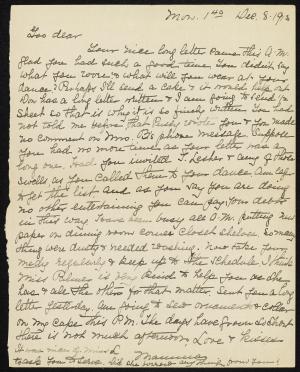 Mon. 1 Dec. 8. 19
dear
Your nice long letter came this A.M.
Glad you had such a good time. You didn't say
what you wore & what will you wear at your
dance? Perhaps I'll send a cake & it would help out
Don has a long letter written & I am going to send
Sheet so that is why it is so written. You had
not told me before that wrote you & you made
no comment on Mrs. B's phone message. Suppose
you had no more time as your letter was a
long one. Had you invited J. Lesher & any of those
swells as you called them to your dance. Am
to get the list and as you say you are doing
no other entertaining you can pay your debts
in this way. Have been busy all A.M. putting
paper on dining room closet shelves. So many
thing were dusty & needed washing. Now take your
meds regularly & keep up to the schedule. I think
Miss is very kind to help you as she
has & all the others for that matter. Sent you a long
letter yesterday. Am going to sew ornament & collar
on my cape this P.M. The days have grown so short
there is not much afternoon. Love & kisses
Mamma
to ask you to